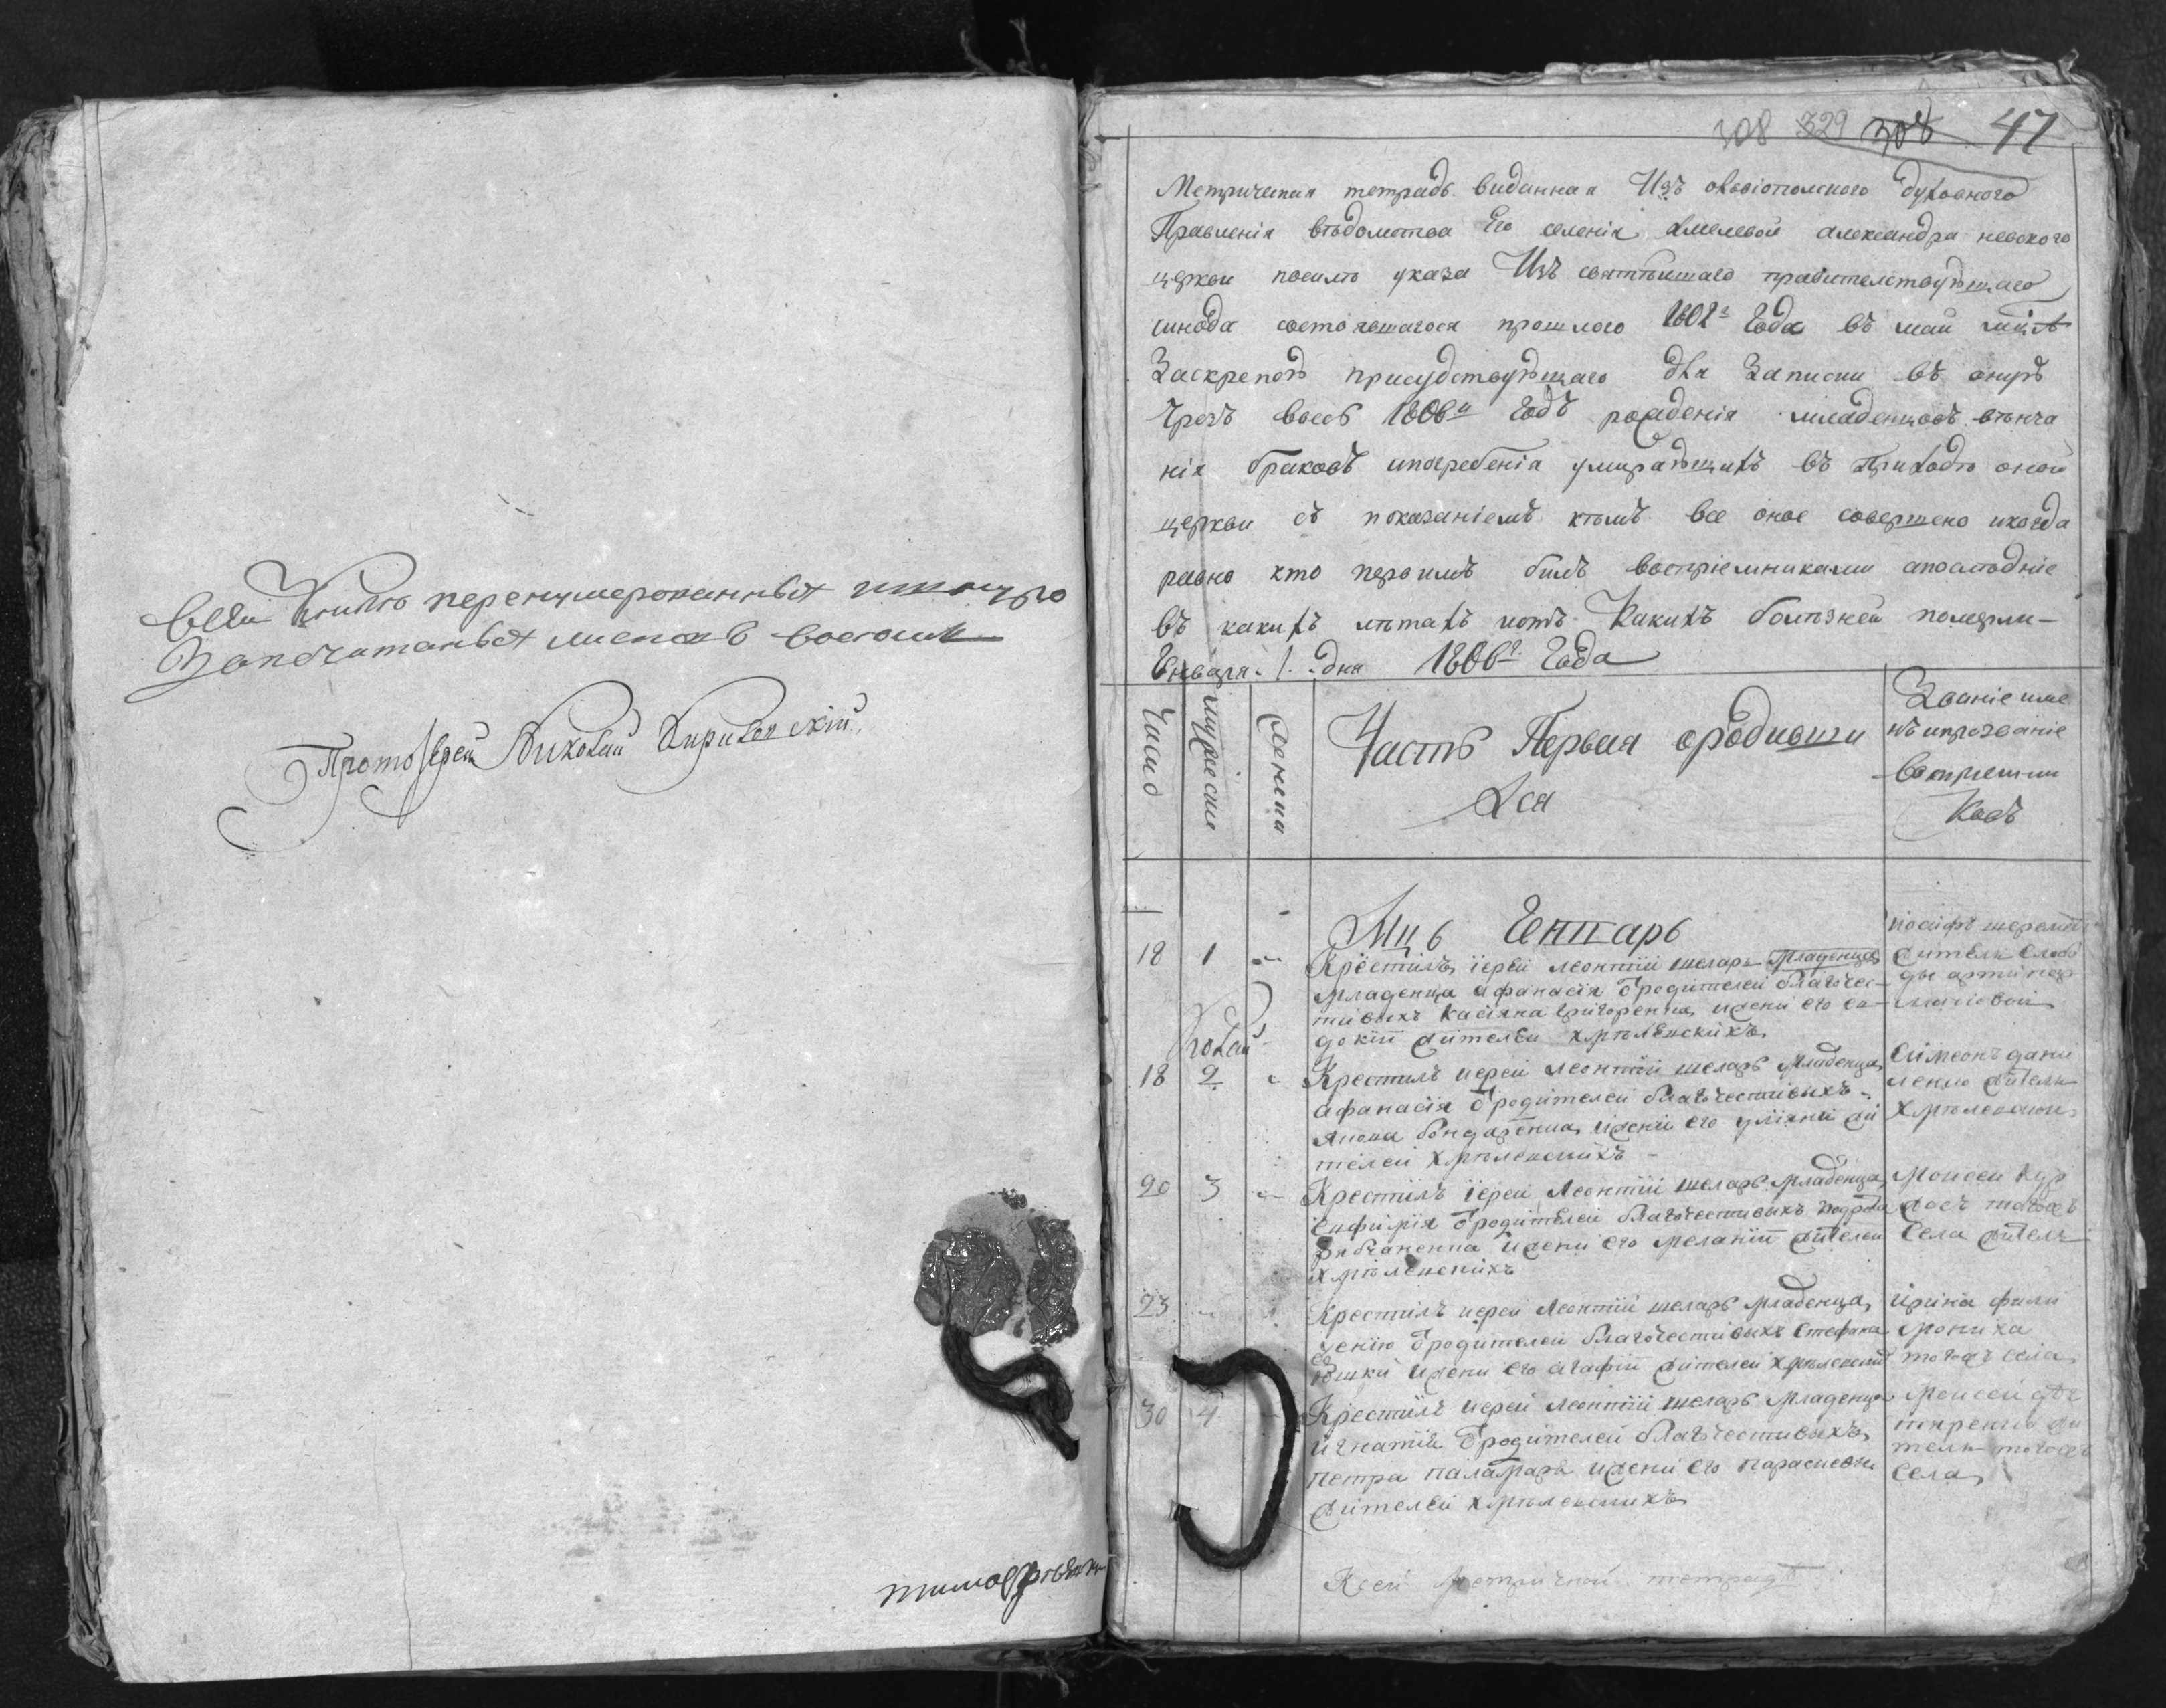 Всей книги перенумерованных и шнуро
Запечатаных листов восемь
Протоіерей Николай
308 329 308 47
Метрическая тетрадь виданная Изъ олвіополского духовного
Правленія вѣдомства Его селенія хмелевой александра невского
церкви посилѣ указа Изъ святѣйшаго правителствующаго
синода состоявшагося прошлого 1802 года въ май мцѣ
Заскрепою присудствующаго для Записки въ оную
Чрезъ весь 1806й Годъ рожденія младенцовъ вѣнча
нія браковъ ипогребенія умирающихъ въ Приходѣ оной
церкви съ показаніемъ кѣмъ все оное совершено икогда
равно кто первимъ билъ воспріемниками апослѣдніе
въ какихъ лѣтахъ иотъ Какихъ болѣзней померли
Генваря 1 дня 1806г Года
Число
мужеска
женска
Часть Первая ородивши
хся
Званіе име
нъ ипрозваніе
воспріемни
Ковъ
Мцъ Генварь
18 1
Крестилъ іерей леонтій шкларъ младенца
младенца афанасія ѿродителей благочес
тивыхъ касіяна григоренка иѫени его ев
докіи жителей хмѣлевскихъ
Іосифъ
житель слобо
ды
18 2
Крестилъ иерей леонтій шкларъ младенца
афанасія ѿродителей благочестивыхъ
якова бондаренка ижени его уліяни жи
телей хмѣлевскихъ
Симеонъ дани
ленко житель
хмѣлевской
20 3
Крестилъ іерей леонтій шкларъ младенца
Евфимія ѿродителей благочестивыхъ
ижени его меланіи жителей
хмѣлевскихъ
Моисей
тогожъ
села житель
23
Крестилъ иерей леонтій шкларъ младенца
ѯенію ѿродителей благочестивыхъ Стефана
ижени его агафіи жителей хмѣлевскихъ
ирина фили
мониха
тогожъ села
30 4
Крестилъ иерей леонтій шкларъ младенца
игнатія ѿродителей благочестивыхъ
петра паламаря ижени его параскевы
жителей хмѣлевскихъ
Моисей
жи
тель тогожъ
села
Ксей метричной тетради